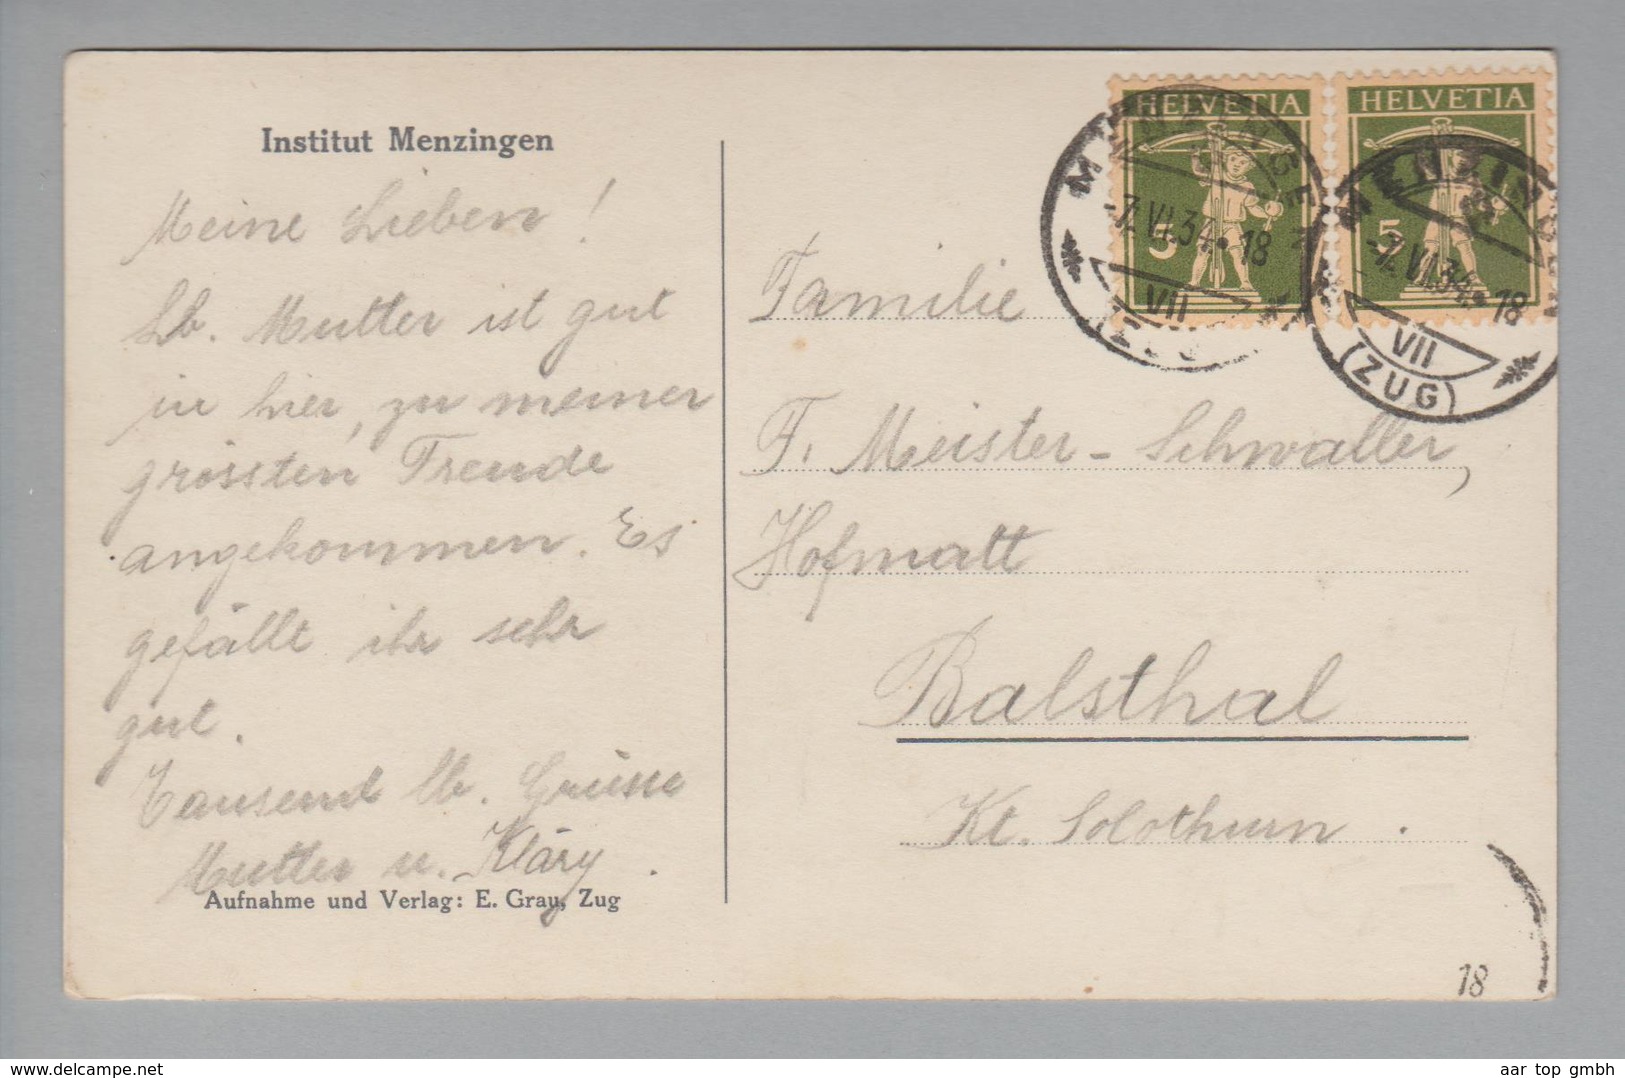 Institut Menzingen
Meine Lieben!
Lb. Mutter ist gut
in hier, zu meiner
grössten Freude
angekommen. Es
gefällt ihr sehr
gut.
Tausend lb. Grüsse
Mutter u. Kläry.
Aufnahme und Verlag: E. Grau, Zug
HELVETIA
5
HELVETIA
5
MENZINGEN
-7.VI.34-18
VII
(ZUG)
MENZINGEN
-7.VI.34-18
VII
(ZUG)
Familie
F. Meister-Schwaller,
Hofmatt
Balsthal
Kt. Solothurn.
18
aar top gmbh
delcampe.net